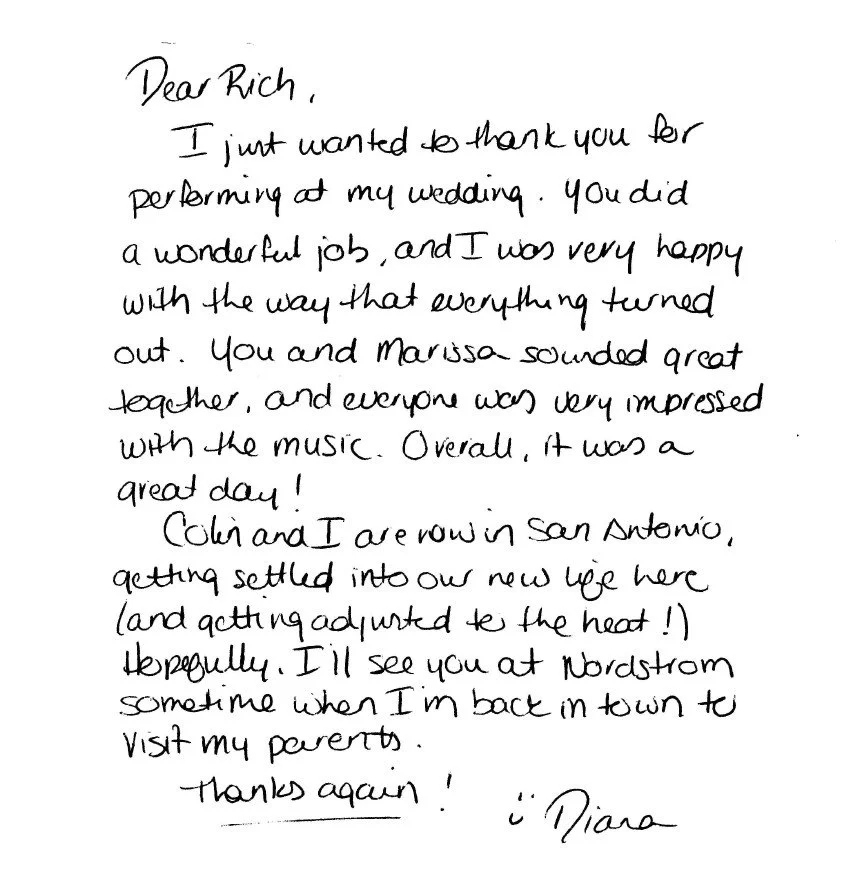 Dear Rich,
I just wanted to thank you for
performing at my wedding. You did
a wonderful job, and I was very happy
with the way that everything turned
out. You and Marissa sounded great
together, and everyone was very impressed
with the music. Overall, it was a
great day!
Colin and I are now in San Antonio,
getting settled into our new life here
(and getting adjusted to the heat!)
Hopefully, I'll see you at Nordstrom
sometime when I'm back in town to
visit my parents.
Thanks again!
:) Diana